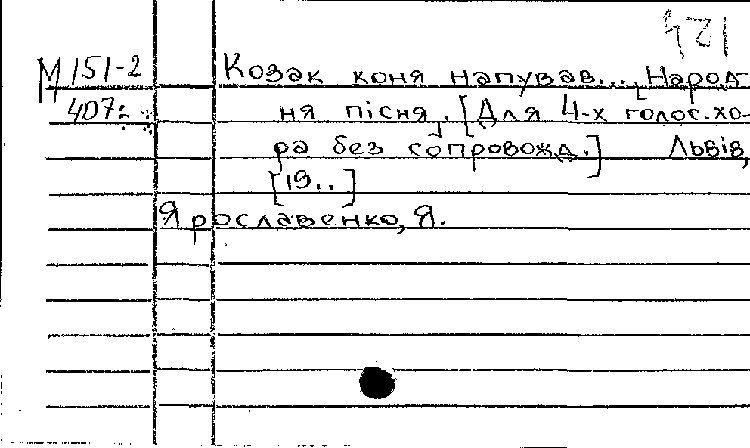 124
М 151-2
407:
Козак коня напував..., Народ-
ня пісня. [Для 4-х голос. хо-
ра без сопровожд.] Львів,
[19..]
Ярославенко, Я.